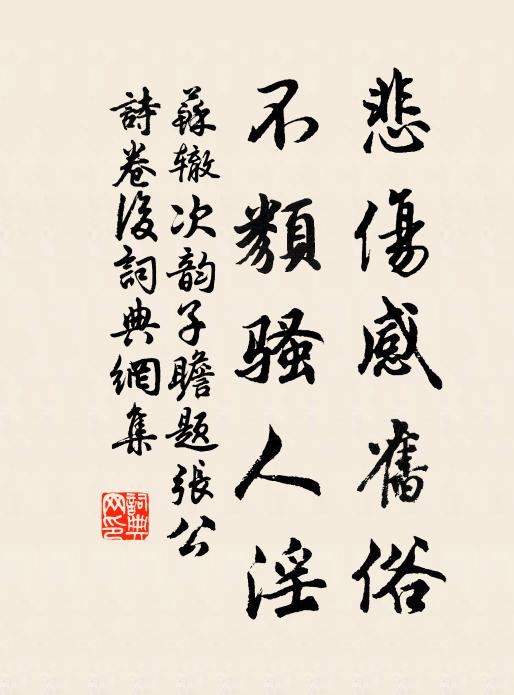 悲傷感舊俗
不類騷人淫
蘇辙次韵子瞻題張公
詩卷後詞典網集
詞典網印